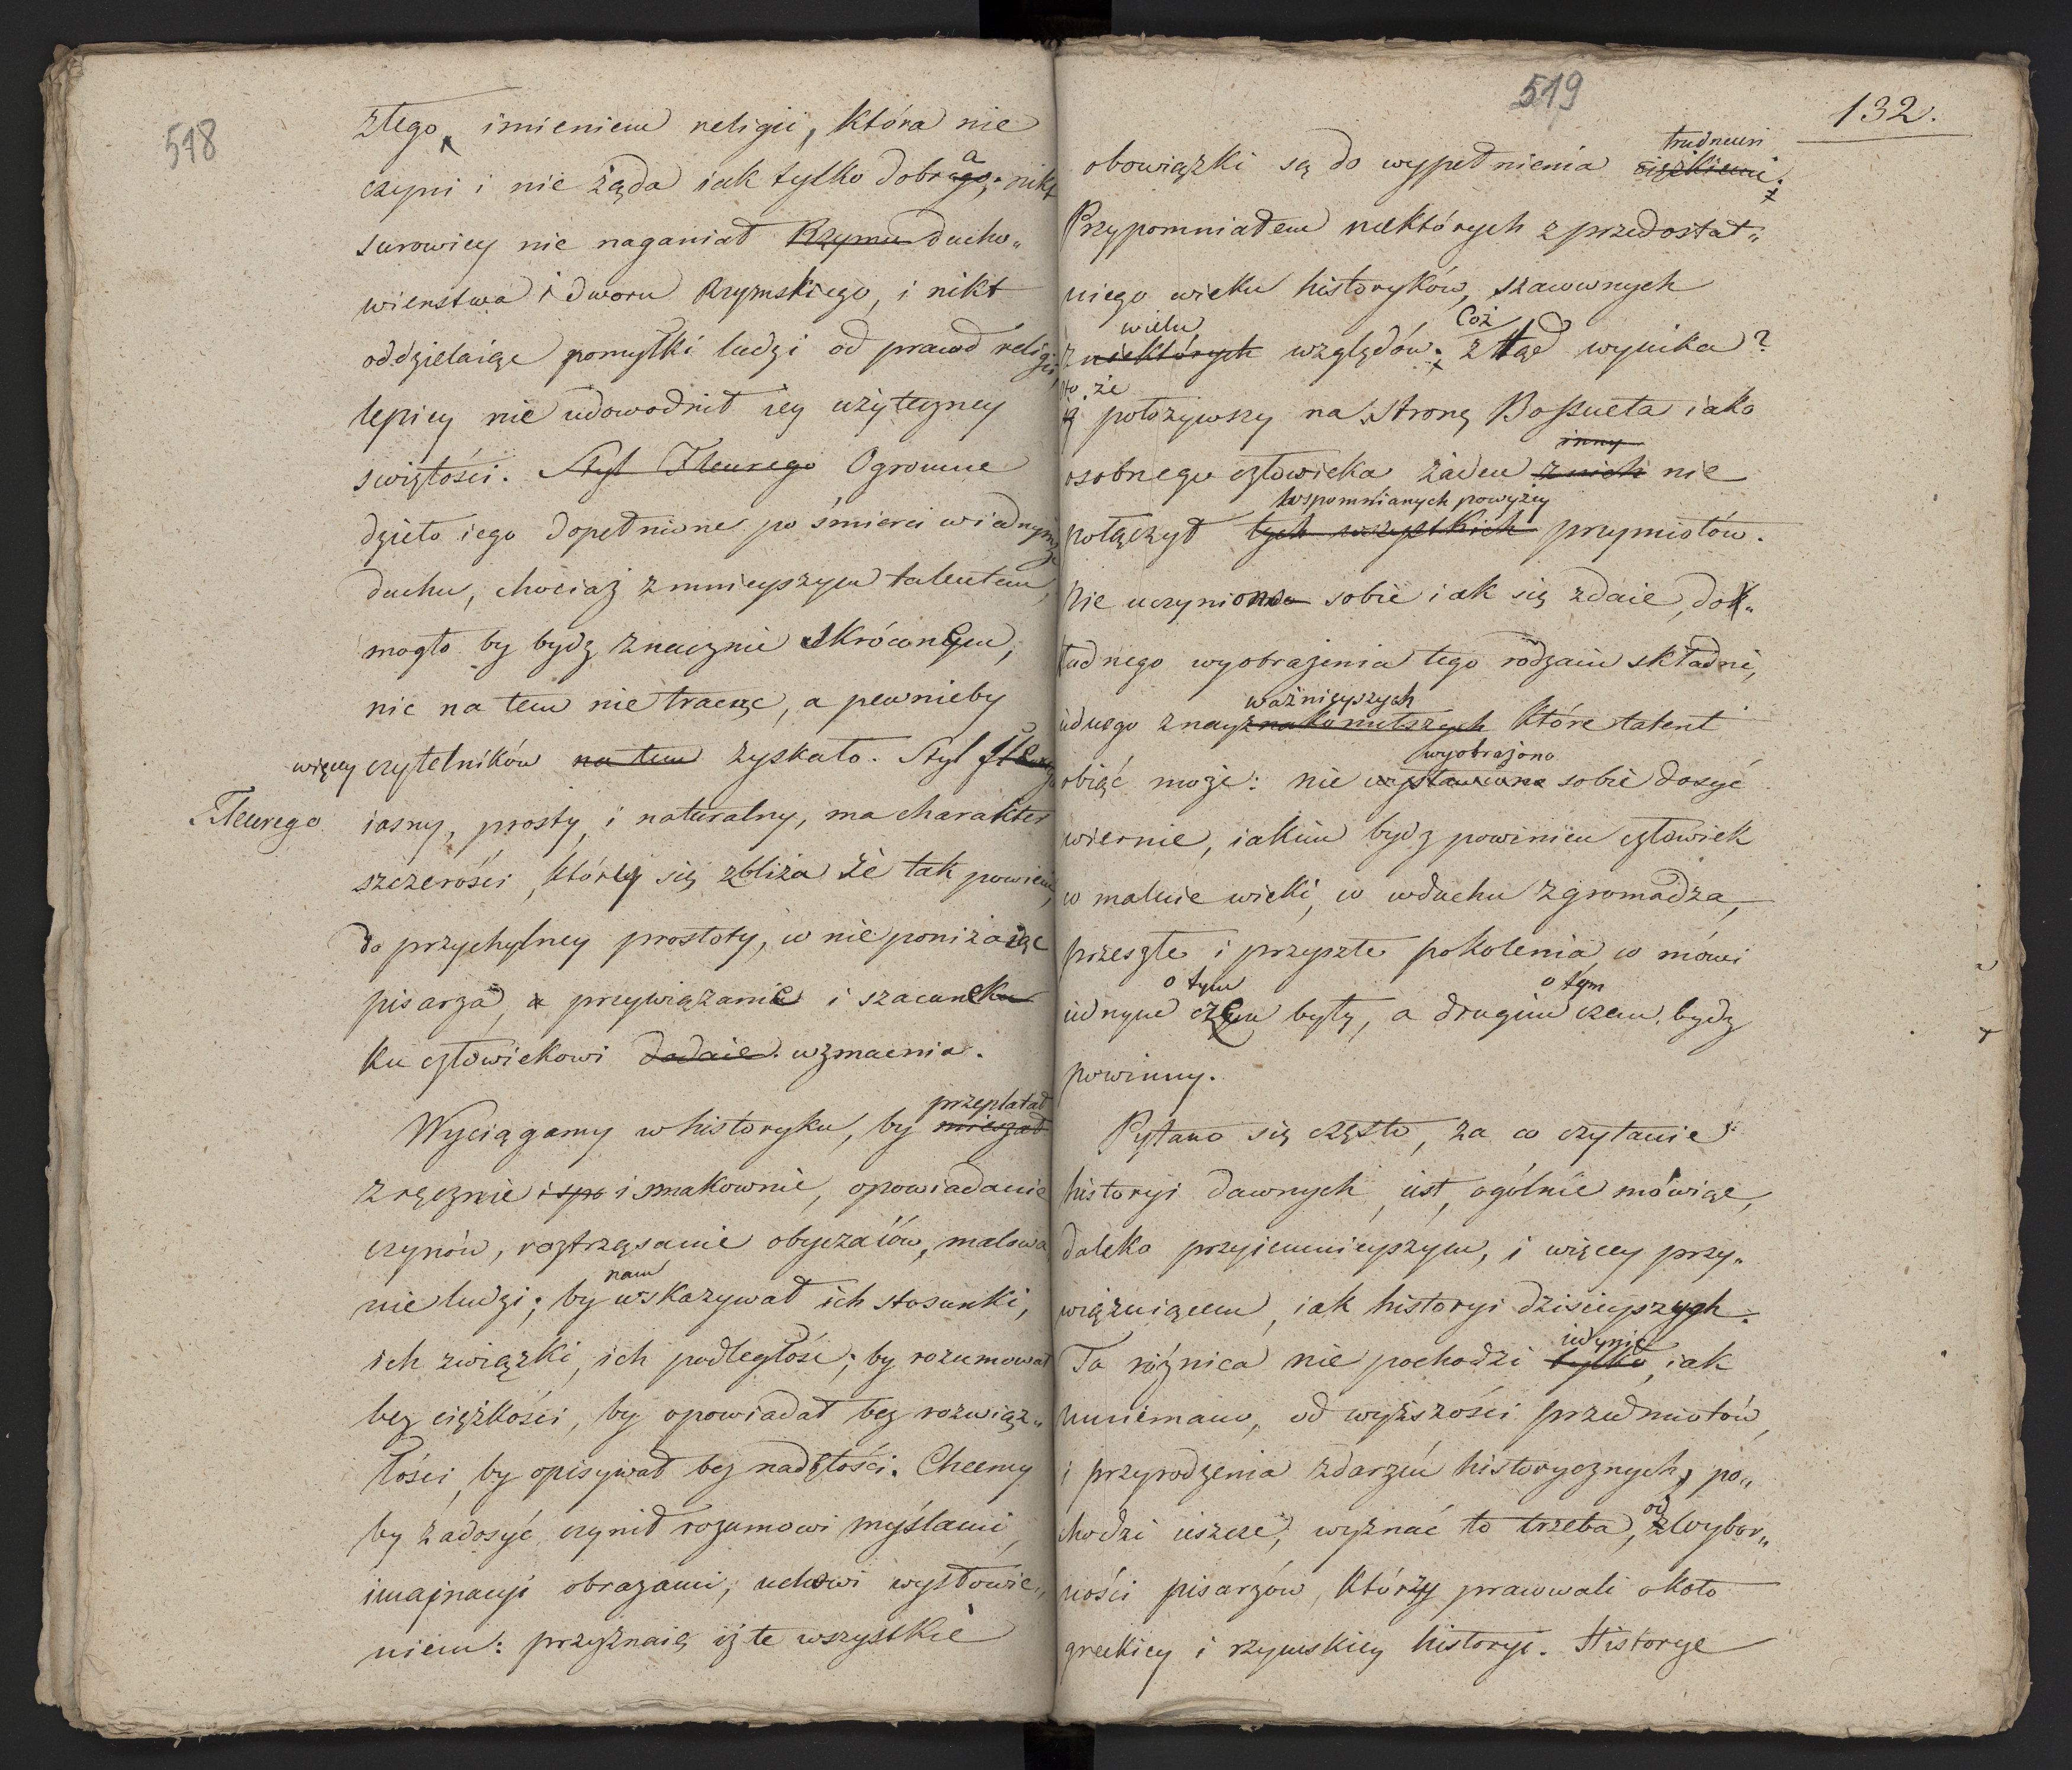 518
złego, imieniem religii, która nie
czyni i nie żąda iak tylko dobra; nikt
surowiey nie naganiał Rzymu ducho„
wieństwa i dworu Rzymskiego, i nikt
oddzielaiąc pomyłki ludzi od prawd religii,
lepiey nie udowodnił iey użyteczney
swiętości. Styl Fleurego Ogromne
dzieło iego dopełnione po śmierci w iednymże
duchu, chociaż z mnieyszym talentem,
mogło by bydz znacznie skróconem,
nic na tem nie tracąc, a pewnieby
więcey czytelników na tem zyskało. Styl
Fleurego iasny, prosty, i naturalny, ma charakter
szczerości, który się zbliża że tak powiem,
do przychylney prostoty, co nie poniżaiąc
pisarza, przywiązanie i szacunek
ku człowiekowi dodaie. wzmacnia.
przeplatał
Wyciągamy w historyku, by mieszał
zręcznie i spo i smakownie, opowiadanie
czynów, roztrząsanie obyczaiów, malowa
nam
nie ludzi; by wskazywał ich stosunki,
ich związki, ich podległość; by rozumował
bez ciężkości, by opowiadał bez rozwiąz„
łości, by opisywał bez nadętości. Chcemy
by zadosyć czynił rozumowi myślami,
imaginacyi obrazami, uchowi wysłowie„
niem: przyznaię iż te wszystkie
519
132.
trudnemi
obowiązki są do wypełnienia ciężkiemi.
Przypomniałem niektórych z przedostat„
niego wieku historyków, szanownych
wielu Coż
z niektórych względów; ztąd wynika?
to, że
iż położywszy na stronę Bossueta iako
inny
osobnego człowieka żaden z nich nie
wspomnianych powyżey
połączył tych wszystkich przymiotów.
Nie uczyniono sobie iak się zdaie, dok„
ładnego wyobrażenia tego rodzaiu składni,
ważnieyszych
iednego z nayznakomitszych które talent
wyobrażono
obiąć może: nie wystawiono sobie dosyć
wiernie, iakim bydz powinien człowiek
co maluie wieki, co w duchu zgromadza,
przeszłe i przyszłe pokolenia co mówi
o tym o tym
iednym czem były, a drugim czem bydz
powinny.
Pytano się często, za co czytanie
historyi dawnych, iest, ogólnie mówiąc,
daleko przyiemnieyszym, i więcey przy„
wiązuiącem, iak historyi dzisieyszych.
iedynie
Ta różnica nie pochodzi tylko, iak
mniemano, od wyższości przedmiotów,
i przyrodzenia zdarzeń historycznych, po„
od
chodzi ieszcze, wyznać to trzeba, z wybor„
ności pisarzów, którzy pracowali około
greckiey i rzymskiey historyi. Historye